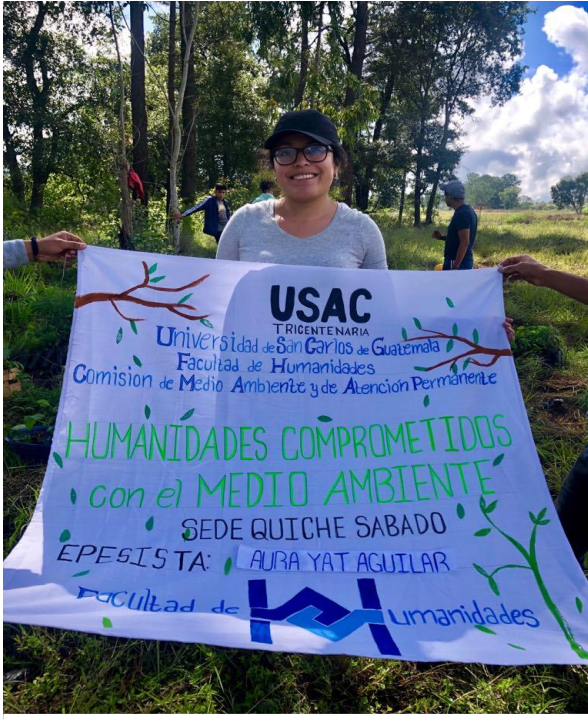 USAC
TRICENTENARIA
Universidad de San Carlos de Guatemala
Facultad de Humanidades
Comisión de Medio Ambiente y de Atención Permanente
HUMANIDADES COMPROMETIDOS
con el MEDIO AMBIENTE
SEDE QUICHE SABADO
EPESISTA: AURA YAT AGUILAR
Facultad de Humanidades